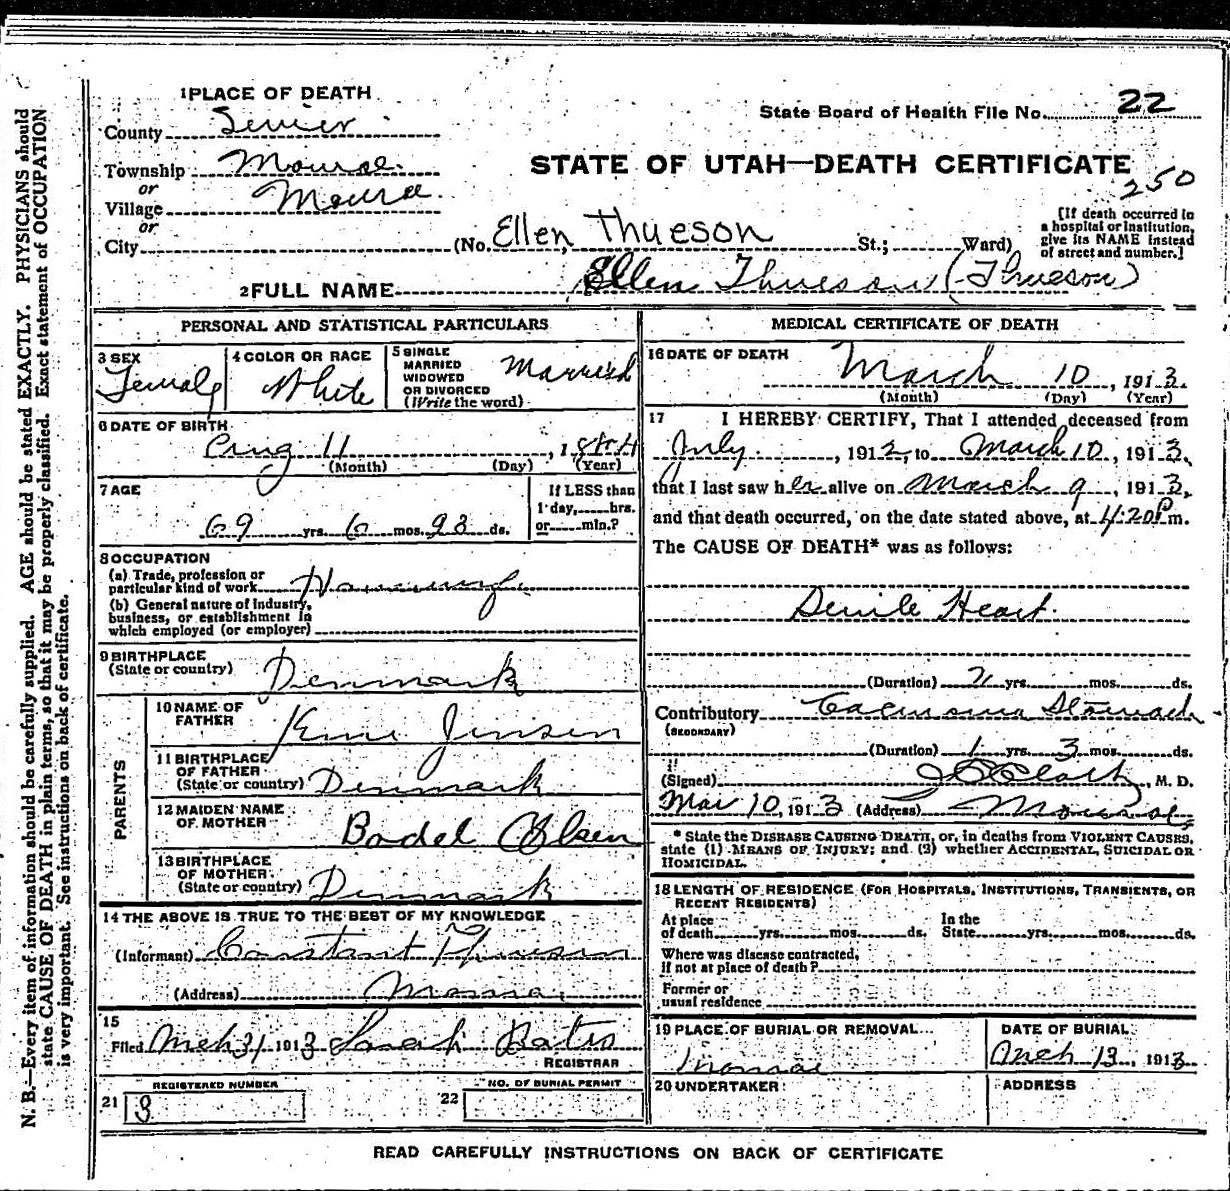 1 PLACE OF DEATH
County Sevier
State Board of Health File No. 22
Township Monroe
or
STATE OF UTAH—DEATH CERTIFICATE
250
Village Monroe
or
City (No. Ellen Thueson St.; Ward)
[If death occurred in a hospital or institution, give its NAME instead of street and number.]
2 FULL NAME Ellen Thueson (Thueson)
PERSONAL AND STATISTICAL PARTICULARS
3 SEX Female
4 COLOR OR RACE White
5 SINGLE MARRIED WIDOWED OR DIVORCED (Write the word) Married
6 DATE OF BIRTH
Aug 11, 1
(Month) (Day) (Year)
7 AGE
69 yrs. 6 mos. ds.
If LESS than 1 day, hrs. or min.?
8 OCCUPATION
(a) Trade, profession or particular kind of work
(b) General nature of Industry, business, or establishment in which employed (or employer)
9 BIRTHPLACE (State or country) Denmark
10 NAME OF FATHER Jensen
11 BIRTHPLACE OF FATHER (State or country) Denmark
12 MAIDEN NAME OF MOTHER Bodel Olsen
13 BIRTHPLACE OF MOTHER (State or country) Denmark
PARENTS
14 THE ABOVE IS TRUE TO THE BEST OF MY KNOWLEDGE
(Informant) Constant Thueson
(Address) Monroe
15
Filed Mch 31 1913 Sarah Bates
REGISTRAR
REGISTERED NUMBER
21 3
NO. OF BURIAL PERMIT
22
MEDICAL CERTIFICATE OF DEATH
16 DATE OF DEATH
March 10, 1913.
(Month) (Day) (Year)
17 I HEREBY CERTIFY, That I attended deceased from
July, 1912, to March 10, 1913,
that I last saw her alive on March 9, 1913,
and that death occurred, on the date stated above, at 4:20 P.m.
The CAUSE OF DEATH* was as follows:
Senile Heart.
(Duration) 2 yrs. mos. ds.
Contributory Carcinoma Stomach
(SECONDARY)
(Duration) 1 yrs. 3 mos. ds.
(Signed) Clark, M. D.
Mar 10, 1913 (Address) Monroe
* State the DISEASE CAUSING DEATH, or, in deaths from VIOLENT CAUSES, state (1) MEANS OF INJURY; and (2) whether ACCIDENTAL, SUICIDAL OR HOMICIDAL.
18 LENGTH OF RESIDENCE (FOR HOSPITALS, INSTITUTIONS, TRANSIENTS, OR RECENT RESIDENTS)
At place of death yrs. mos. ds. In the State yrs. mos. ds.
Where was disease contracted, if not at place of death?
Former or usual residence
19 PLACE OF BURIAL OR REMOVAL
Monroe
DATE OF BURIAL
Mch 13, 1913
20 UNDERTAKER
ADDRESS
READ CAREFULLY INSTRUCTIONS ON BACK OF CERTIFICATE
N. B.—Every item of information should be carefully supplied. AGE should be stated EXACTLY. PHYSICIANS should
state CAUSE OF DEATH in plain terms, so that it may be properly classified. Exact statement of OCCUPATION
is very important. See instructions on back of certificate.